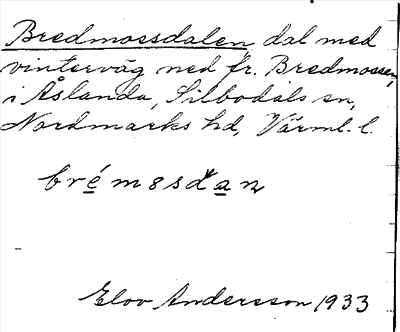 Bredmossdalen dal med
vinterväg ned fr. Bredmossen,
i Åslanda, Silbodals sn,
Nordmarks hd, Värml. l.
Elov Andersson 1933